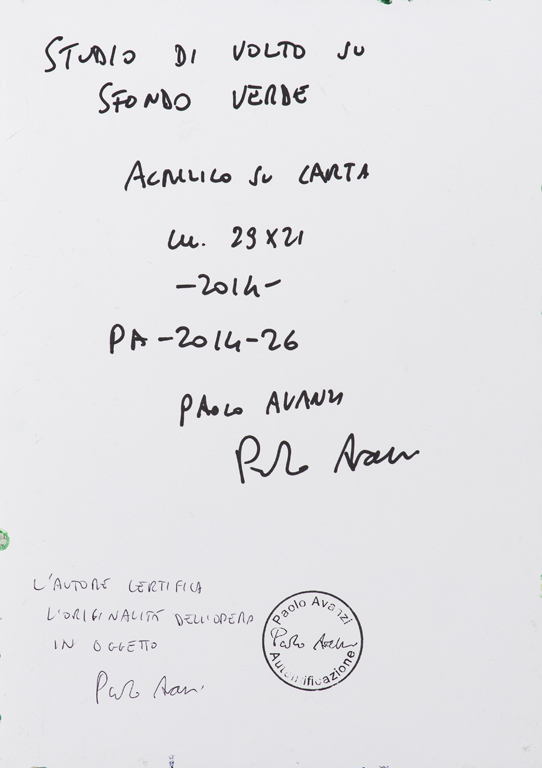 STUDIO DI VOLTO SU
SFONDO VERDE
ACRILICO SU CARTA
cm. 29X21
-2014-
PA-2014-26
PAOLO AVANZI
Paolo Avanzi
L'AUTORE CERTIFICA
L'ORIGINALITÀ DELL'OPERA
IN OGGETTO
Paolo Avanzi
Paolo Avanzi
Paolo Avanzi
Autentificazione